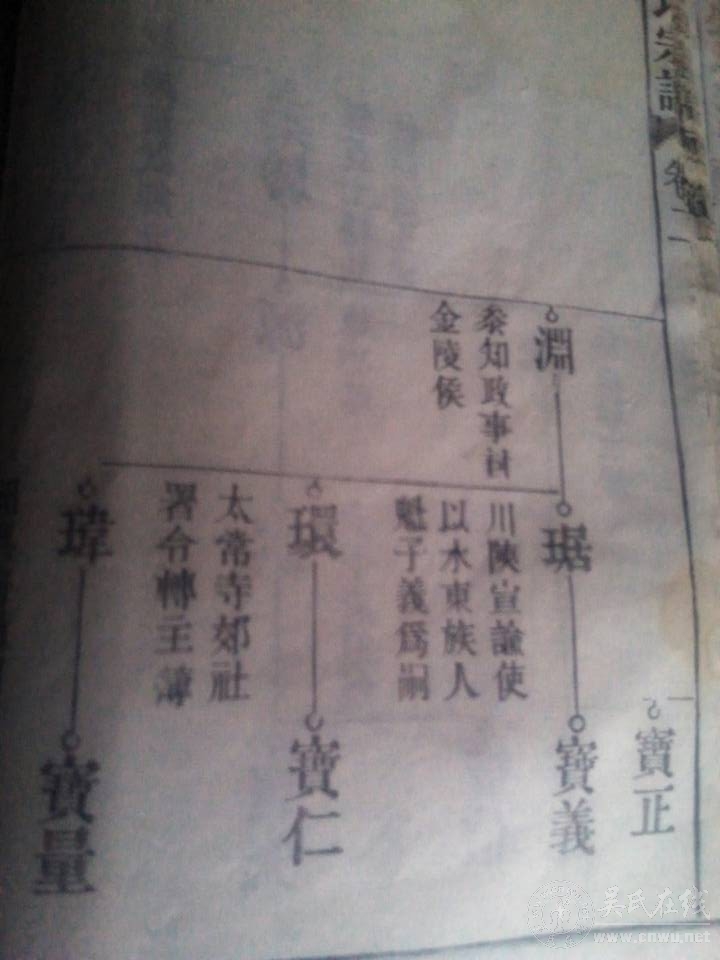 宗譜
卷
二
寶正
淵
叅知政事封
金陵侯
琚
川陝宣諭使
以水東族人
魁子義爲嗣
寶義
環
太常寺郊社
署令轉主簿
寶仁
瑋
寶量
吴氏在线
www.cnwu.net